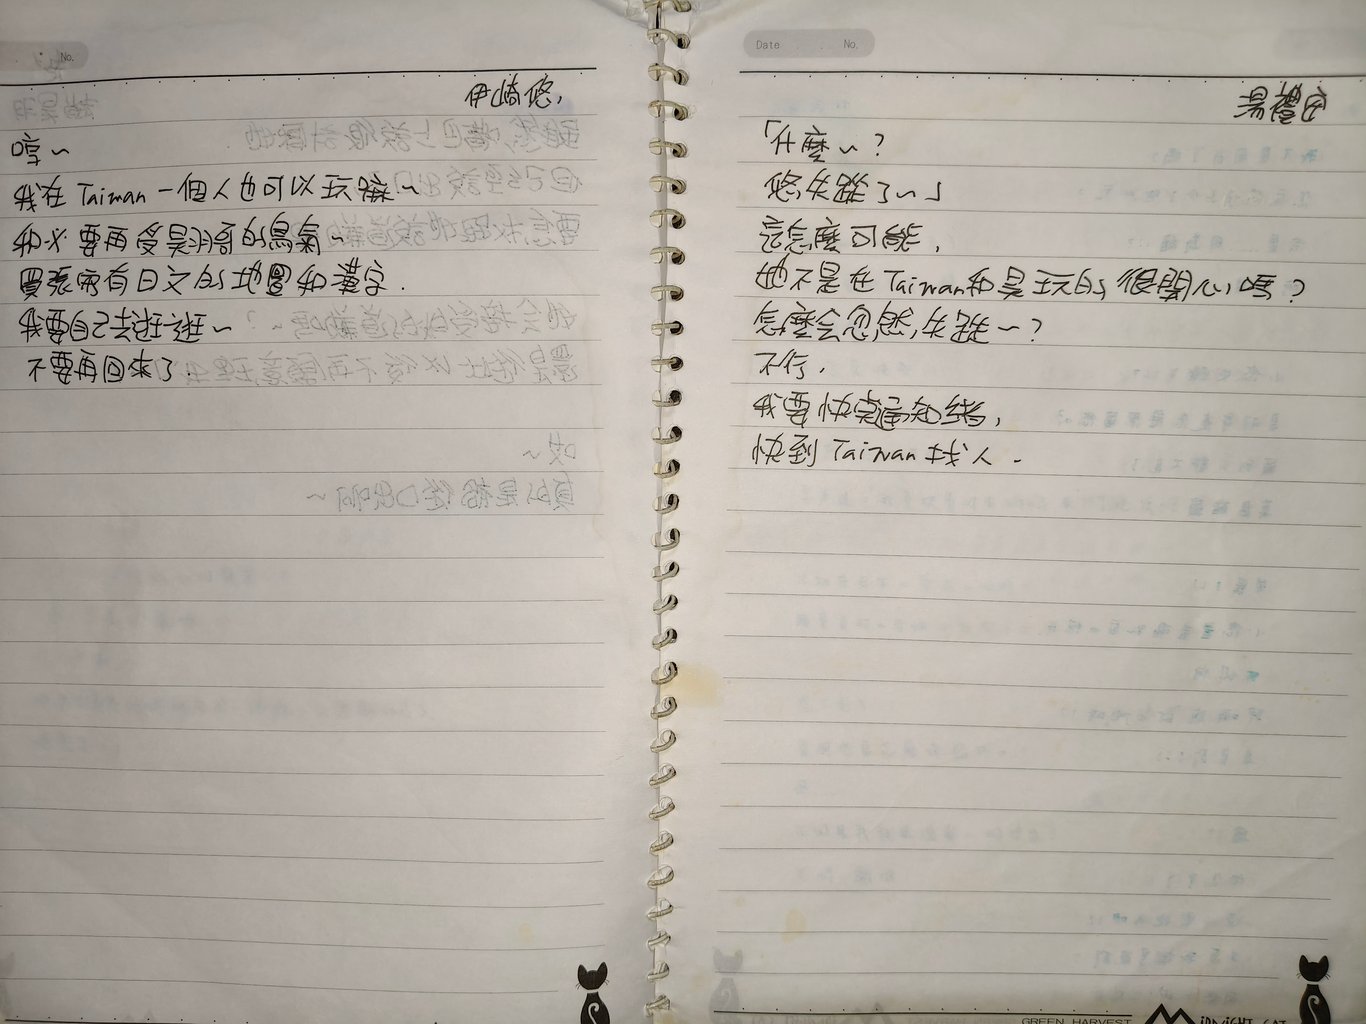 No.
伊崎悠,
哼~
我在 Taiwan 一個人也可以玩嘛~
勿必要再受昊翔哥的鳥氣~
買張有日文的地圖和漢字.
我要自己去逛逛~
不要再回來了.
Date No.
湯
「什麼~?
悠失蹤了~」
這怎麼可能,
她不是在Taiwan和昊玩的很開心嗎?
怎麼会忽然失蹤~?
不行,
我要快點
快到 Taiwan 找人.
GREEN HARVEST
MIDNIGHT CAT